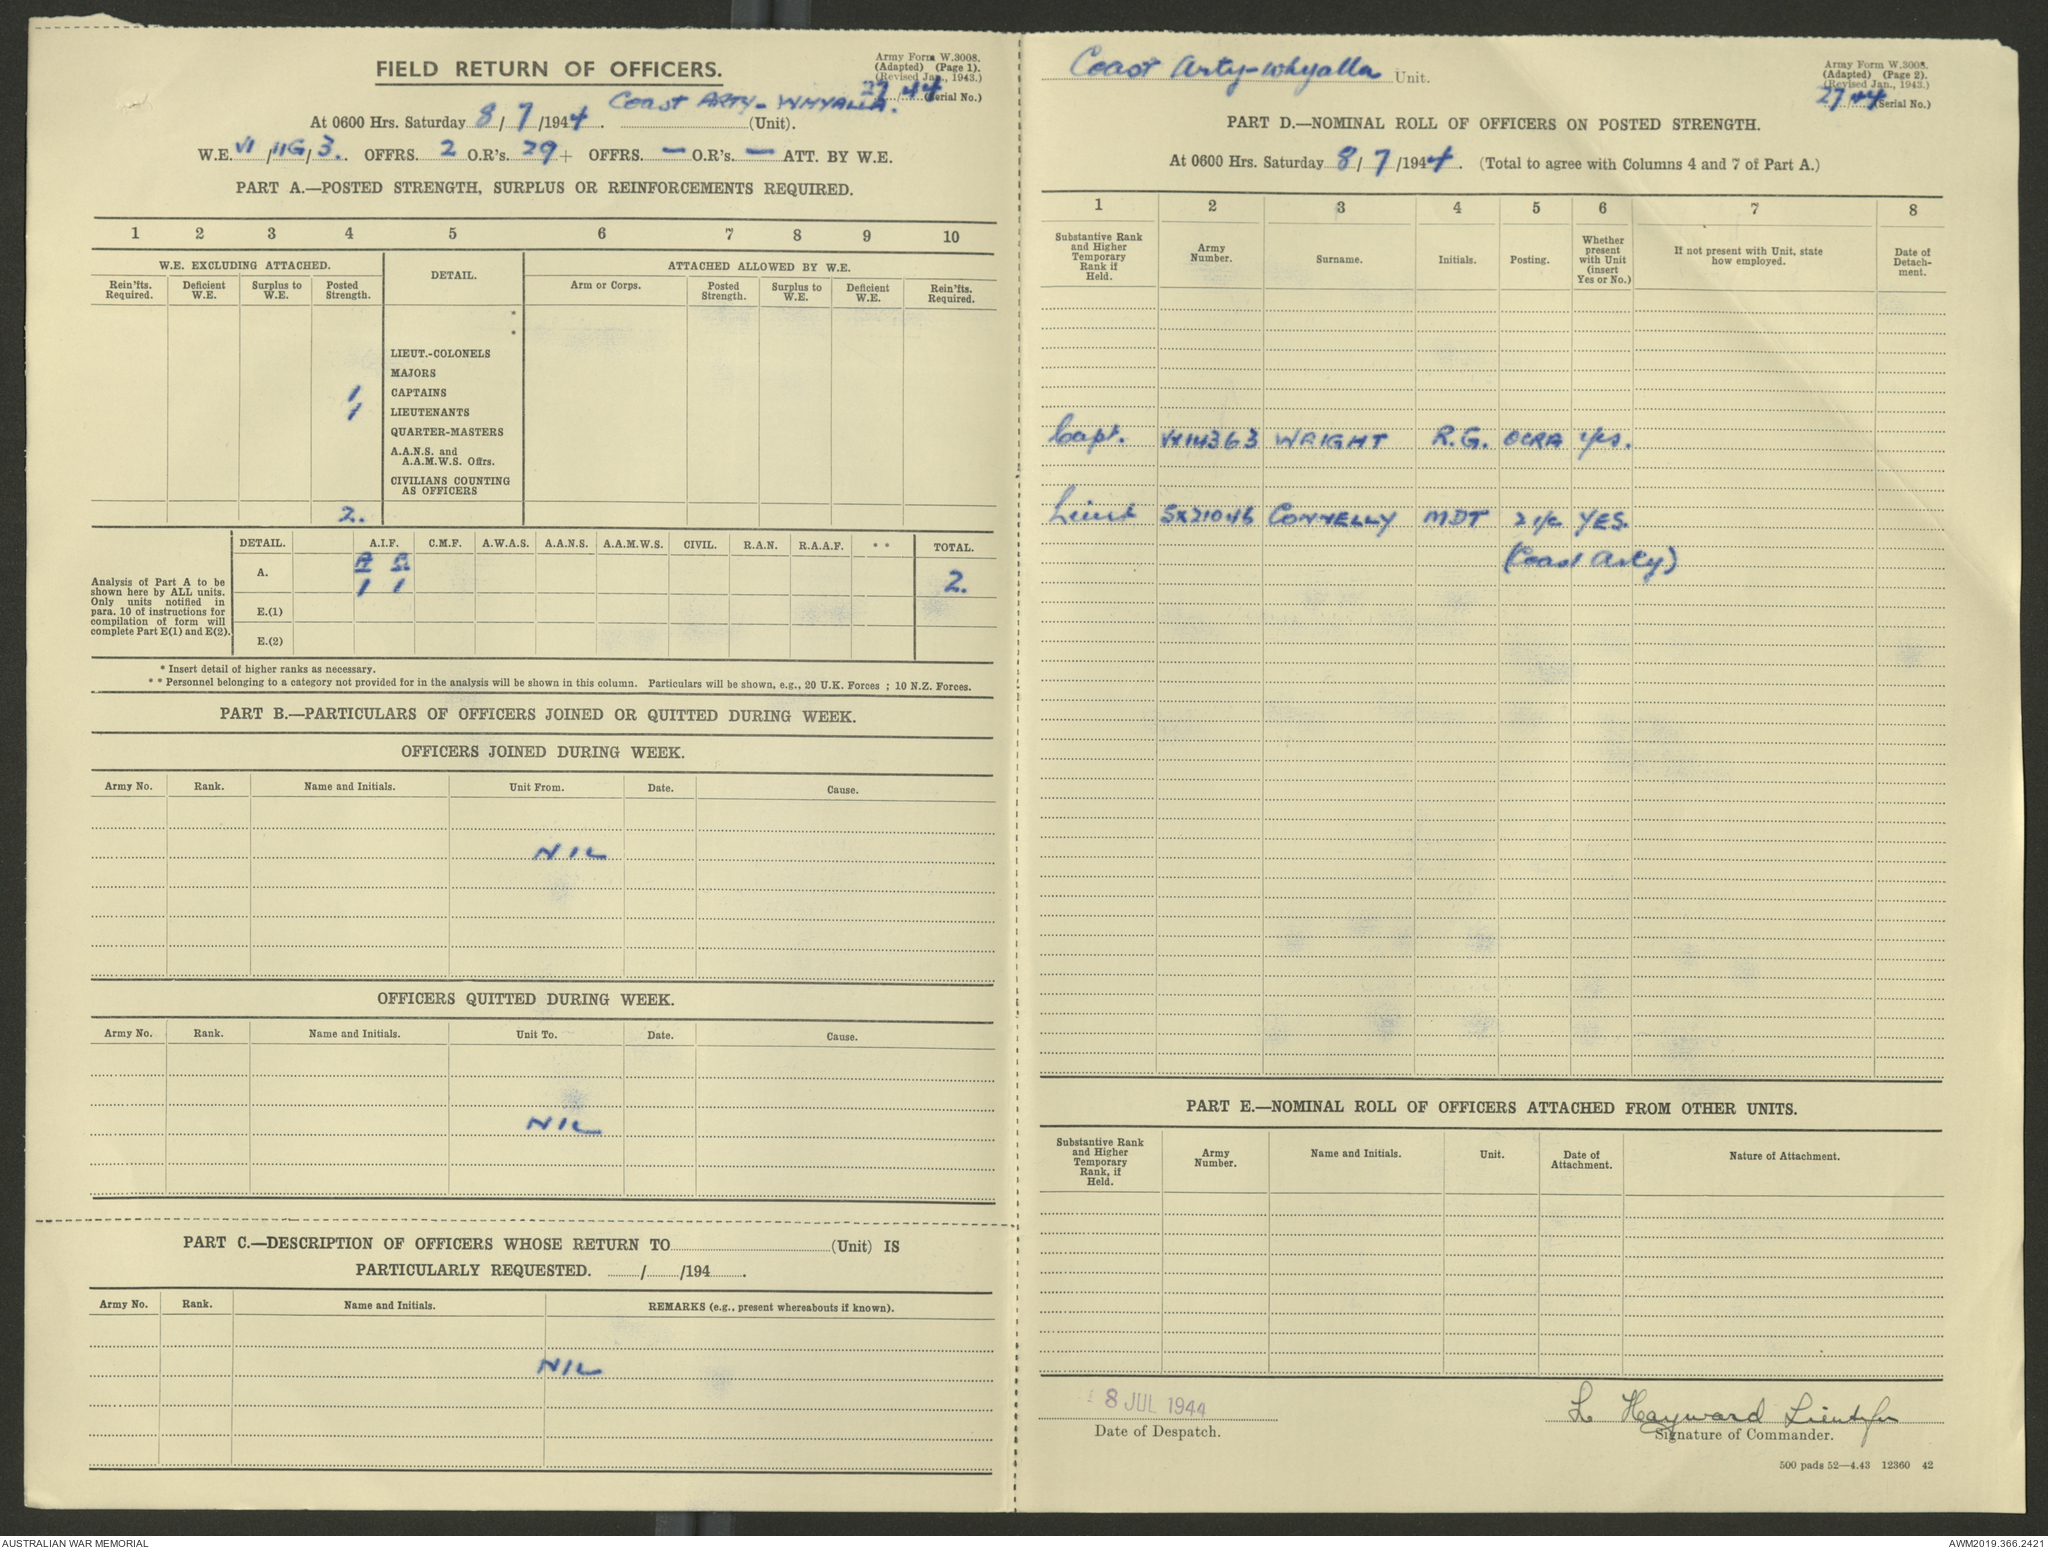 Army Form W.3008.
(Adapted) (Page 1).
(Revised Jan., 1943.)
27/44 (Serial No.)
FIELD RETURN OF OFFICERS.
At 0600 Hrs. Saturday 8/7/1944. COAST ARTY - WHYALLA. (Unit).
W.E. VI/11G/3. OFFRS. 2 O.R's. 29 + OFFRS. — O.R's. — ATT. BY W.E.
PART A.—POSTED STRENGTH, SURPLUS OR REINFORCEMENTS REQUIRED.
1 2 3 4 5 6 7 8 9 10
W.E. EXCLUDING ATTACHED. DETAIL. ATTACHED ALLOWED BY W.E.
Rein'fts. Required. Deficient W.E. Surplus to W.E. Posted Strength. Arm or Corps. Posted Strength. Surplus to W.E. Deficient W.E. Rein'fts. Required.
*
*
LIEUT.-COLONELS
MAJORS
1 CAPTAINS
1 LIEUTENANTS
QUARTER-MASTERS
A.A.N.S. and
A.A.M.W.S. Offrs.
CIVILIANS COUNTING
AS OFFICERS
2.
DETAIL. A.I.F. C.M.F. A.W.A.S. A.A.N.S. A.A.M.W.S. CIVIL. R.A.N. R.A.A.F. * * TOTAL.
A. 1 1 2.
E.(1)
E.(2)
Analysis of Part A to be
shown here by ALL units.
Only units notified in
para. 10 of instructions for
compilation of form will
complete Part E(1) and E(2).
* Insert detail of higher ranks as necessary.
* * Personnel belonging to a category not provided for in the analysis will be shown in this column. Particulars will be shown, e.g., 20 U.K. Forces ; 10 N.Z. Forces.
PART B.—PARTICULARS OF OFFICERS JOINED OR QUITTED DURING WEEK.
OFFICERS JOINED DURING WEEK.
Army No. Rank. Name and Initials. Unit From. Date. Cause.
NIL
OFFICERS QUITTED DURING WEEK.
Army No. Rank. Name and Initials. Unit To. Date. Cause.
NIL
PART C.—DESCRIPTION OF OFFICERS WHOSE RETURN TO (Unit) IS
PARTICULARLY REQUESTED. / /194 .
Army No. Rank. Name and Initials. REMARKS (e.g., present whereabouts if known).
NIL
Coast Arty-Whyalla Unit.
Army Form W.3008.
(Adapted) (Page 2).
(Revised Jan., 1943.)
27/44 (Serial No.)
PART D.—NOMINAL ROLL OF OFFICERS ON POSTED STRENGTH.
At 0600 Hrs. Saturday 8/7/1944. (Total to agree with Columns 4 and 7 of Part A.)
1 2 3 4 5 6 7 8
Substantive Rank and Higher Temporary Rank if Held. Army Number. Surname. Initials. Posting. Whether present with Unit (insert Yes or No.) If not present with Unit, state how employed. Date of Detach-ment.
Capt. VX114363 WRIGHT R.G. OCRA Yes.
Lieut CONNELLY MDT 2 i/c YES.
(Coast Arty)
PART E.—NOMINAL ROLL OF OFFICERS ATTACHED FROM OTHER UNITS.
Substantive Rank and Higher Temporary Rank, if Held. Army Number. Name and Initials. Unit. Date of Attachment. Nature of Attachment.
8 JUL 1944
Date of Despatch.
L Hayward Lieut for
Signature of Commander.
500 pads 52—4.43 12360 42
AUSTRALIAN WAR MEMORIAL
AWM2019.366.2421